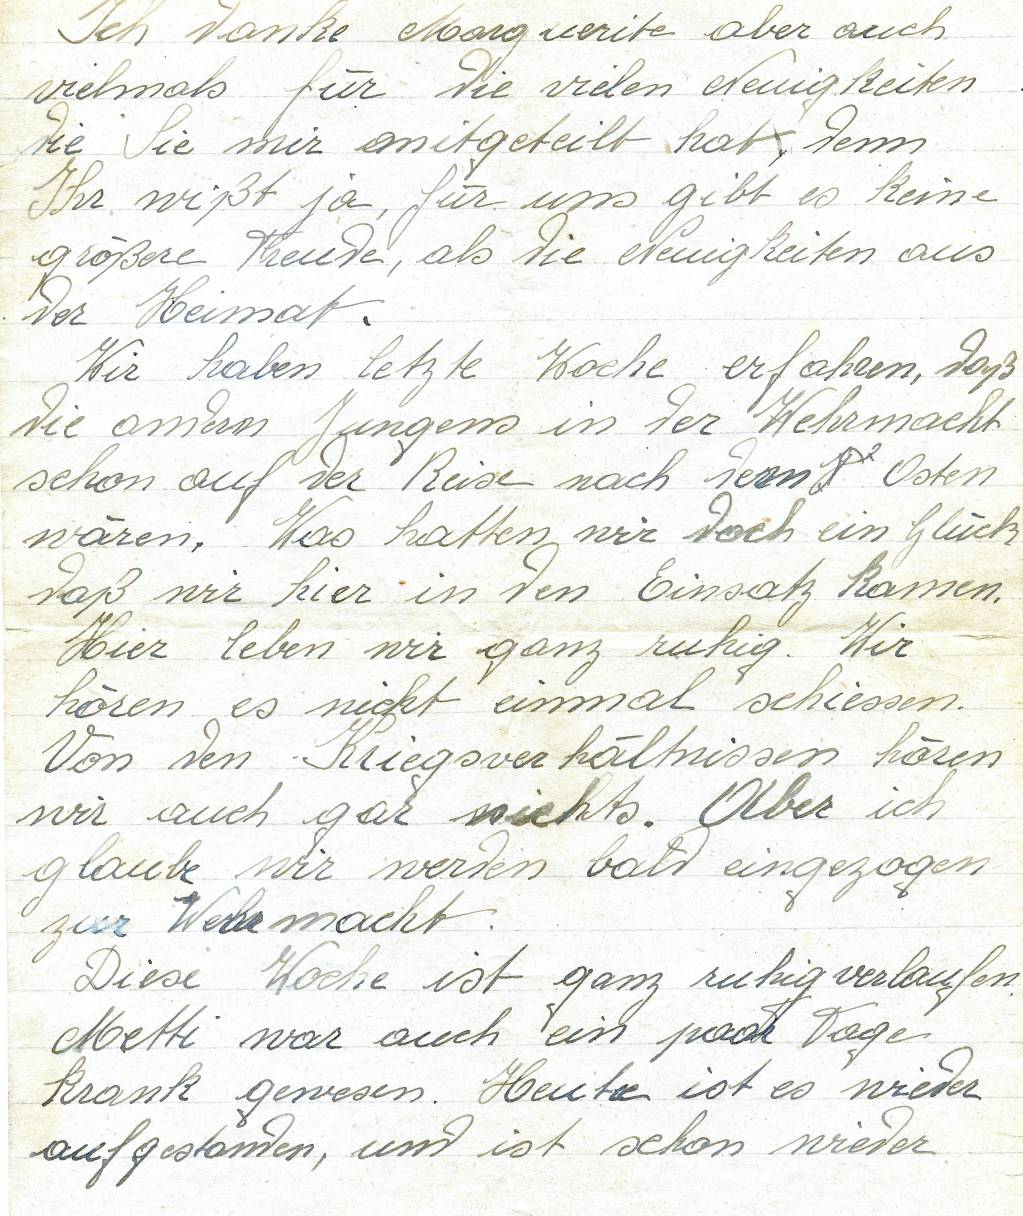 Ich danke Marguerite aber auch
vielmals für die vielen Neuigkeiten
die Sie mir mitgeteilt hat, denn
Ihr wißt ja, für uns gibt es keine
größere Freude, als die Neuigkeiten aus
der Heimat.
Wir haben letzte Woche erfahren, daß
die andern Jungens in der Wehrmacht
schon auf der Reise nach dem Osten
wären. Was hatten wir doch ein Glück
daß wir hier in den Einsatz kamen.
Hier leben wir ganz ruhig. Wir
hören es nicht einmal schiessen.
Von den Kriegsverhältnissen hören
wir auch gar nichts. Aber ich
glaube wir werden bald eingezogen
zur Wehrmacht.
Diese Woche ist ganz ruhig verlaufen.
Metti war auch ein paar Tage
krank gewesen. Heute ist es wieder
aufgestanden, und ist schon wieder